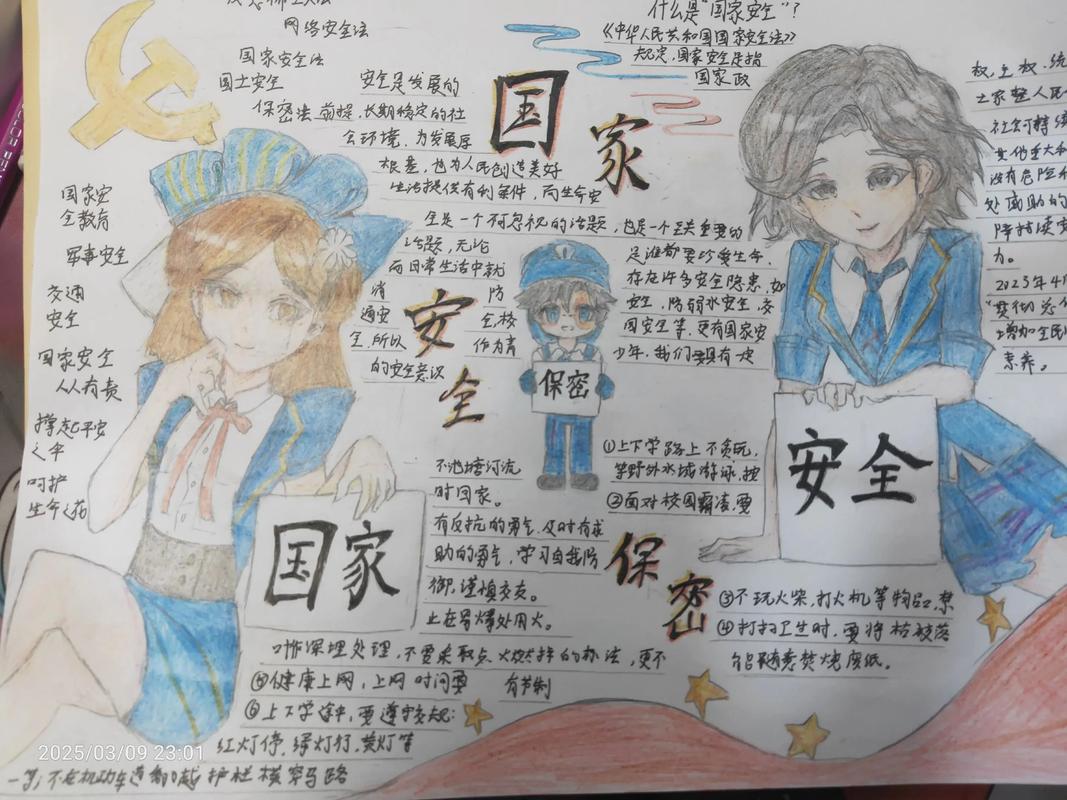 网络安全法
国家安全法
国土安全
保密法
国家安
全教育
军事安全
交通
安全
国家安全
人人有责
撑起平安
之伞
呵护
生命之花
安全是发展的
前提,长期稳定的社
会环境,为发展厚
根基,也为人民创造美好
生活提供有利条件,而生命安
全是一个不忽视的话题,也是一个至关重要的
话题,无论
足谁都要珍爱生命.
而日常生活中就
存在许多安全隐患,如
消
防
安全,防弱水安全,交
通安
全,校
园安全等,更有国家安
全,所以
作为青
少年,我们要具有一定
的安全意识
国家
安全
保密
什么是“国家安全”?
《中华人民共和国国家安全法》
规定,国家安全是指
国家政
权,主权,统
土家整人民
社会可持续
其他重大利
没有危险和
处威胁的
障持续安
力。
2023年4月
“贯彻总体
增加全民
素养。
保密
国家
安全
①上下学路上不贪玩,
②面对校园霸凌,要
不池塘河流
时回家。
有反抗的勇气,及时有求
助的勇气,学习自我防
御,谨慎交友。
止在易爆处用火。
③不玩火柴,打火机等物品,禁
④打扫卫生时,要将枯枝落
叶作深埋处理,不要采取点火燃烧的办法,更不
能随意焚烧废纸。
⑤健康上网,上网时间要
有节制
⑥上下学途中,要遵守交规:
红灯停,绿灯行,黄灯等
一等;不在机动车道翻越护栏横穿马路
2025/03/09 23:01